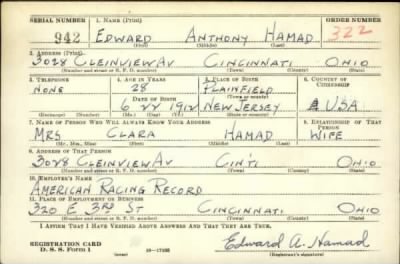 SERIAL NUMBER 1. NAME (Print) ORDER NUMBER
942 EDWARD ANTHONY HAMAD 322
(First) (Middle) (Last)
2. ADDRESS (Print)
3028 CLEINVIEW AV CINCINNATI OHIO
(Number and street or R. F. D. number) (Town) (County) (State)
3. TELEPHONE 4. AGE IN YEARS 5. PLACE OF BIRTH 6. COUNTRY OF CITIZENSHIP
NONE 28 PLAINFIELD
DATE OF BIRTH (Town or county)
6 22 1912 NEW JERSEY USA
(Exchange) (Number) (Mo.) (Day) (Yr.) (State or country)
7. NAME OF PERSON WHO WILL ALWAYS KNOW YOUR ADDRESS 8. RELATIONSHIP OF THAT PERSON
MRS CLARA HAMAD WIFE
(Mr., Mrs., Miss) (First) (Middle) (Last)
9. ADDRESS OF THAT PERSON
3028 CLEINVIEW AV CINTI OHIO
(Number and street or R. F. D. number) (Town) (County) (State)
10. EMPLOYER'S NAME
AMERICAN RACING RECORD
11. PLACE OF EMPLOYMENT OR BUSINESS
320 E 3RD ST CINCINNATI OHIO
(Number and street or R. F. D. number) (Town) (County) (State)
I AFFIRM THAT I HAVE VERIFIED ABOVE ANSWERS AND THAT THEY ARE TRUE.
REGISTRATION CARD
D. S. S. Form 1 Edward A. Hamad
(over) (Registrant's signature)